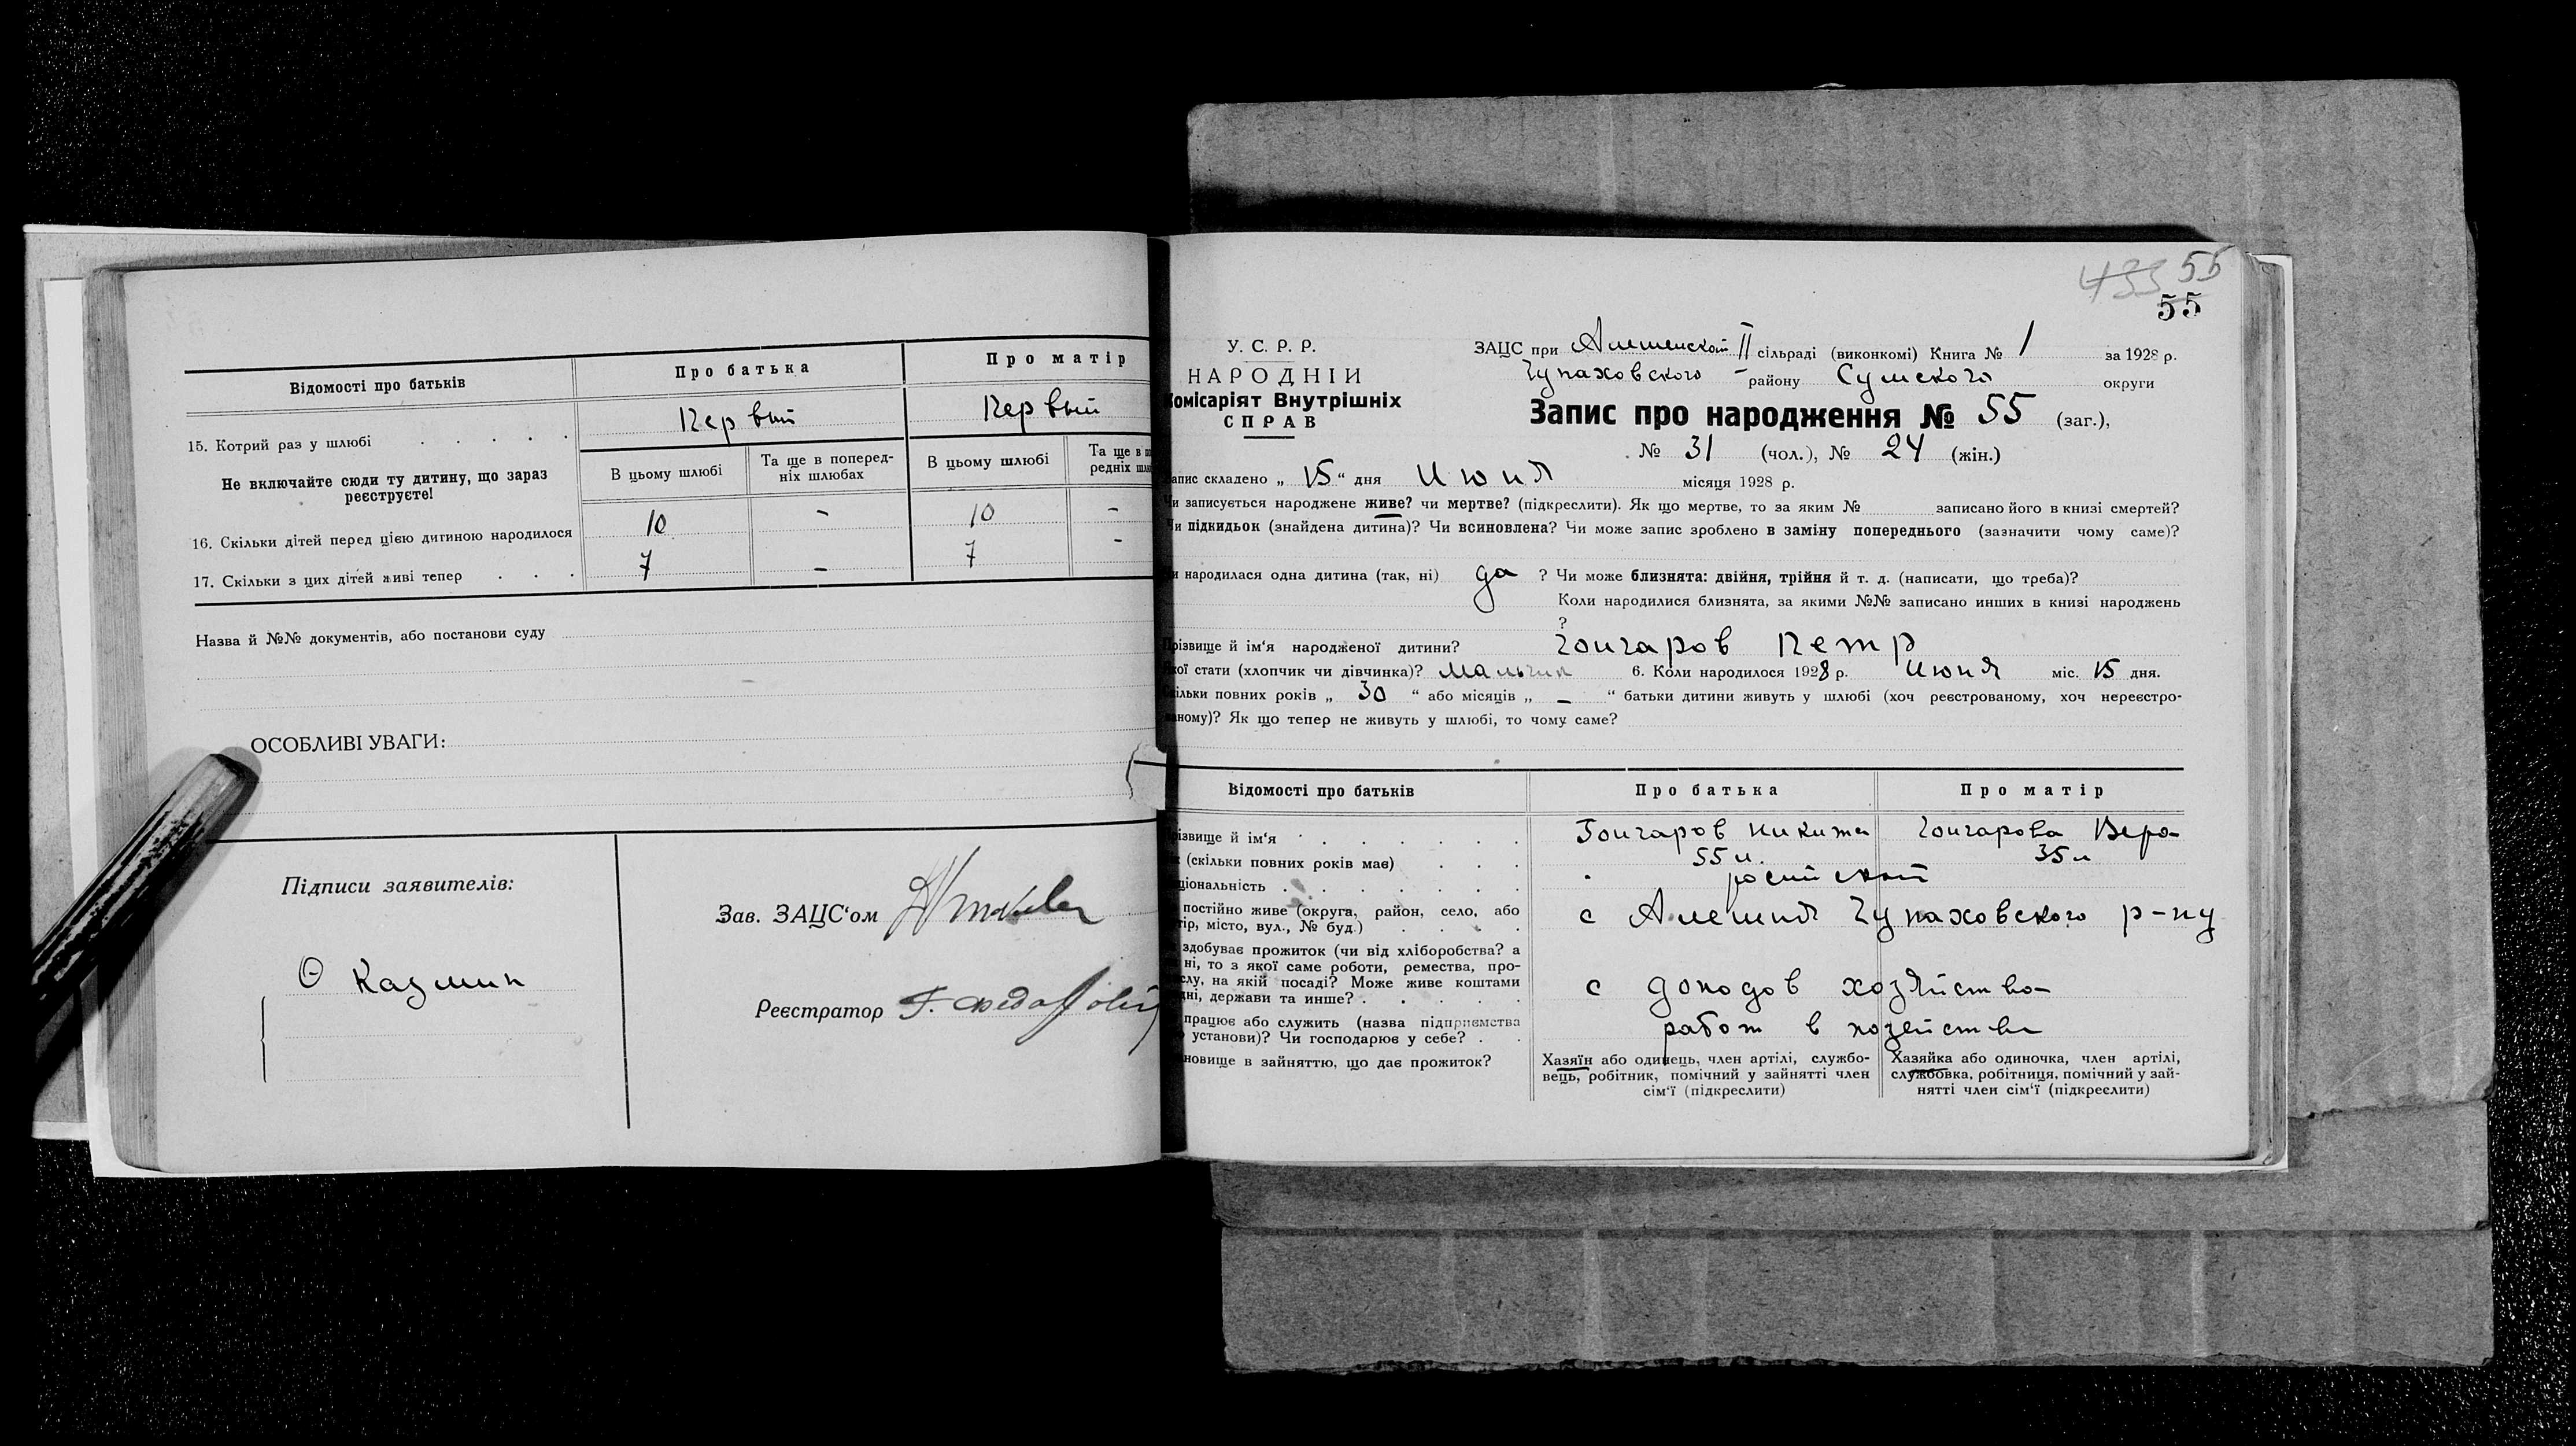 Відомості про батьків
Про батька
Про матір
15. Котрий раз у шлюбі
Первый
Первый
Не включайте сюди ту дитину, що зараз
реєструєте!
В цьому шлюбі
Та ще в поперед-
ніх шлюбах
В цьому шлюбі
Та ще в
редніх
16. Скільки дітей перед цією дитиною народилося
10
-
10
-
17. Скільки з цих дітей живі тепер
7
-
7
-
Назва й №№ документів, або постанови суду
ОСОБЛИВІ УВАГИ:
Підписи заявителів:
Зав. ЗАЦС'ом
Реєстратор
55
55
У. С. Р. Р.
НАРОДНІЙ
Комісаріят Внутрішніх
СПРАВ
ЗАЦС при Алешенской II сільраді (виконкомі) Книга № 1 за 1928 р.
Чупаховского району Сумского округи
Запис про народження № 55 (заг.),
№ 31 (чол.), № 24 (жін.)
запис складено „ 15 “ дня Июня місяця 1928 р.
Чи записується народжене живе? чи мертве? (підкреслити). Як що мертве, то за яким № записано його в книзі смертей?
Чи підкидьок (знайдена дитина)? Чи всиновлена? Чи може запис зроблено в заміну попереднього (зазначити чому саме)?
Чи народилася одна дитина (так, ні) да ? Чи може близнята: двійня, трійня й т. д. (написати, що треба)?
Коли народилися близнята, за якими №№ записано инших в книзі народжень
?
Прізвище й ім'я народженої дитини? Гончаров Петр
Якої стати (хлопчик чи дівчинка)? Мальчик 6. Коли народилося 1928 р. Июня міс. 15 дня.
Скільки повних років „ 30 “ або місяців „ - “ батьки дитини живуть у шлюбі (хоч реєстрованому, хоч нереєстро-
ваному)? Як що тепер не живуть у шлюбі, то чому саме?
Відомості про батьків
Про батька
Про матір
різвище й ім'я
Гончаров Никита
Гончарова Вера
(скільки повних років має)
55 л.
35 л
ціональність
постійно живе (округа, район, село, або
тір, місто, вул., № буд.)
с Алешня Чупаховского р-ну
здобуває прожиток (чи від хліборобства? а
ні, то з якої саме роботи, ремества, про-
слу, на якій посаді? Може живе коштами
дні, держави та инше?
с доходов хозяйства
працює або служить (назва підприємства
установи)? Чи господарює у себе?
работ в хозяйстве
новище в зайняттю, що дає прожиток?
Хазяїн або одинець, член артілі, службо-
вець, робітник, помічний у зайнятті член
сім'ї (підкреслити)
Хазяйка або одиночка, член артілі,
службовка, робітниця, помічний у зай-
нятті член сім'ї (підкреслити)